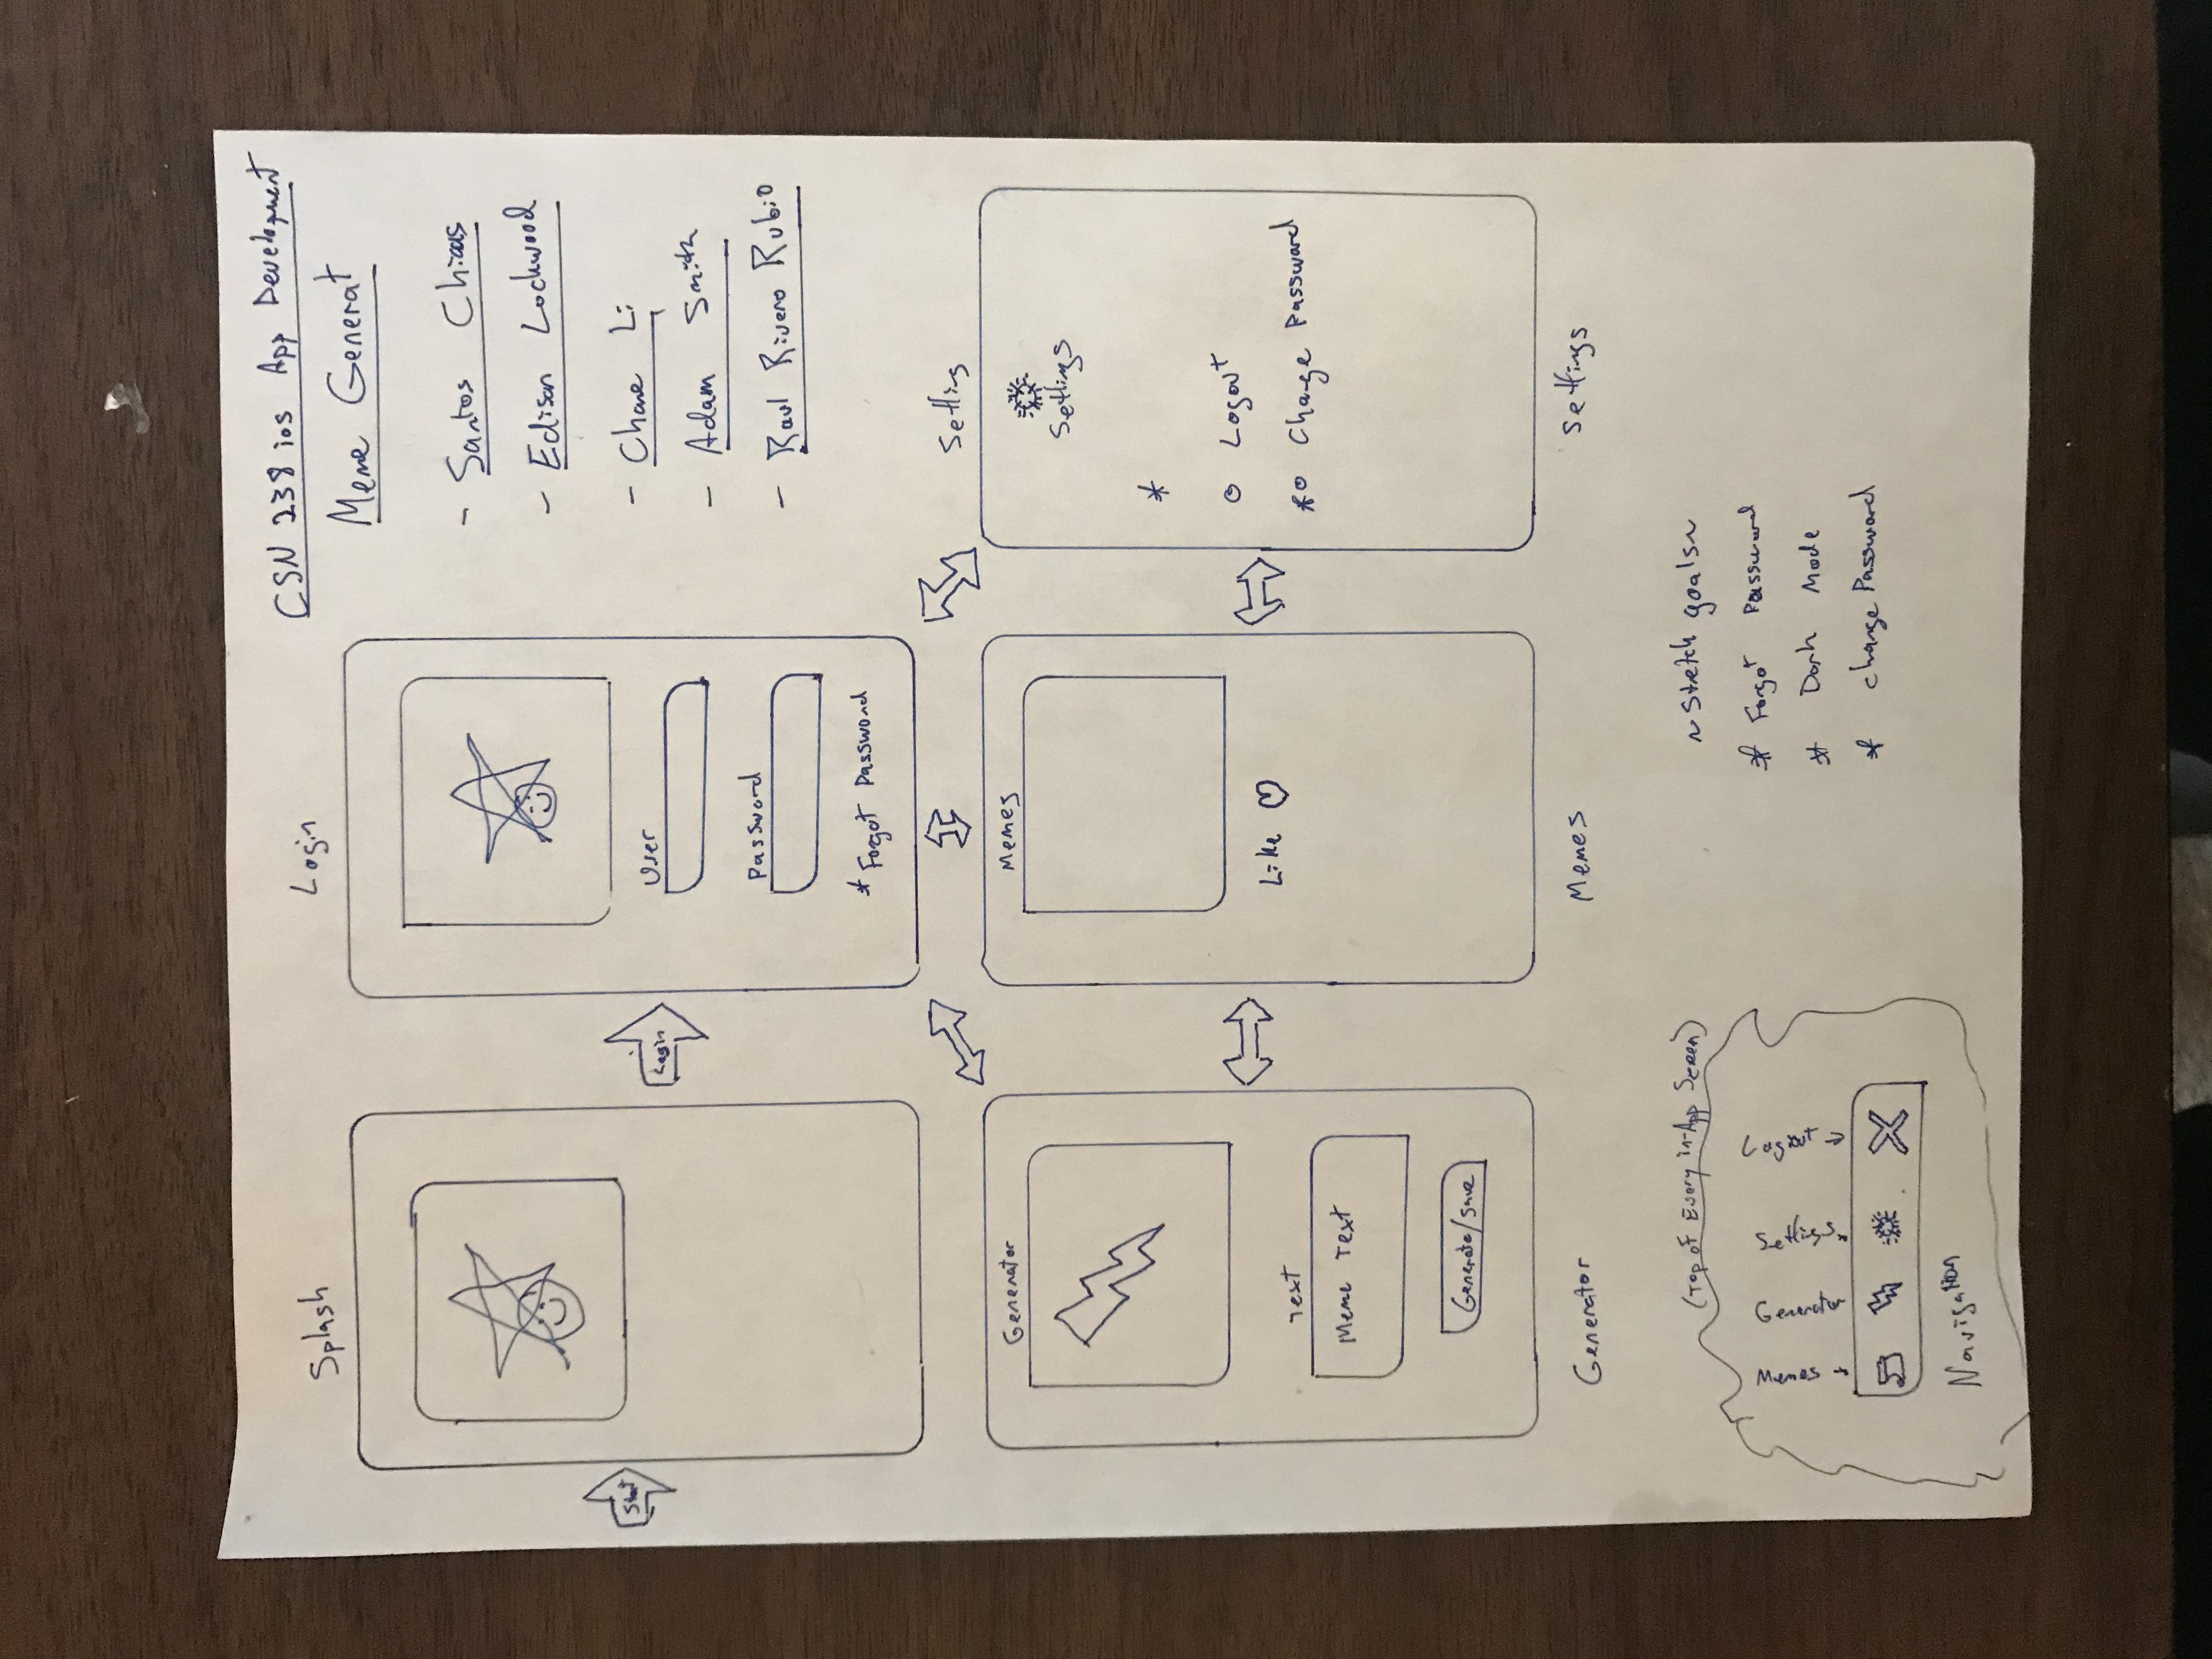 CSN 238 ios App Development
Meme Generat
- Santos Chicas
- Edison Lockwood
- Li
- Adam Smith
- Raul Rivero Rubio
Splash
Start
Login
Login
User
Password
* Forgot Password
Generator
Text
Meme Text
Generate/Save
Generator
Memes
Like ♡
Memes
Setting
Settings
*
o Logout
*o Change Password
Settings
(Top of Every in-App Screen)
Memes →
Generator
Settings
Logout →
Navigation
~Stretch goals~
* Forgot Password
* Dark Mode
* change Password